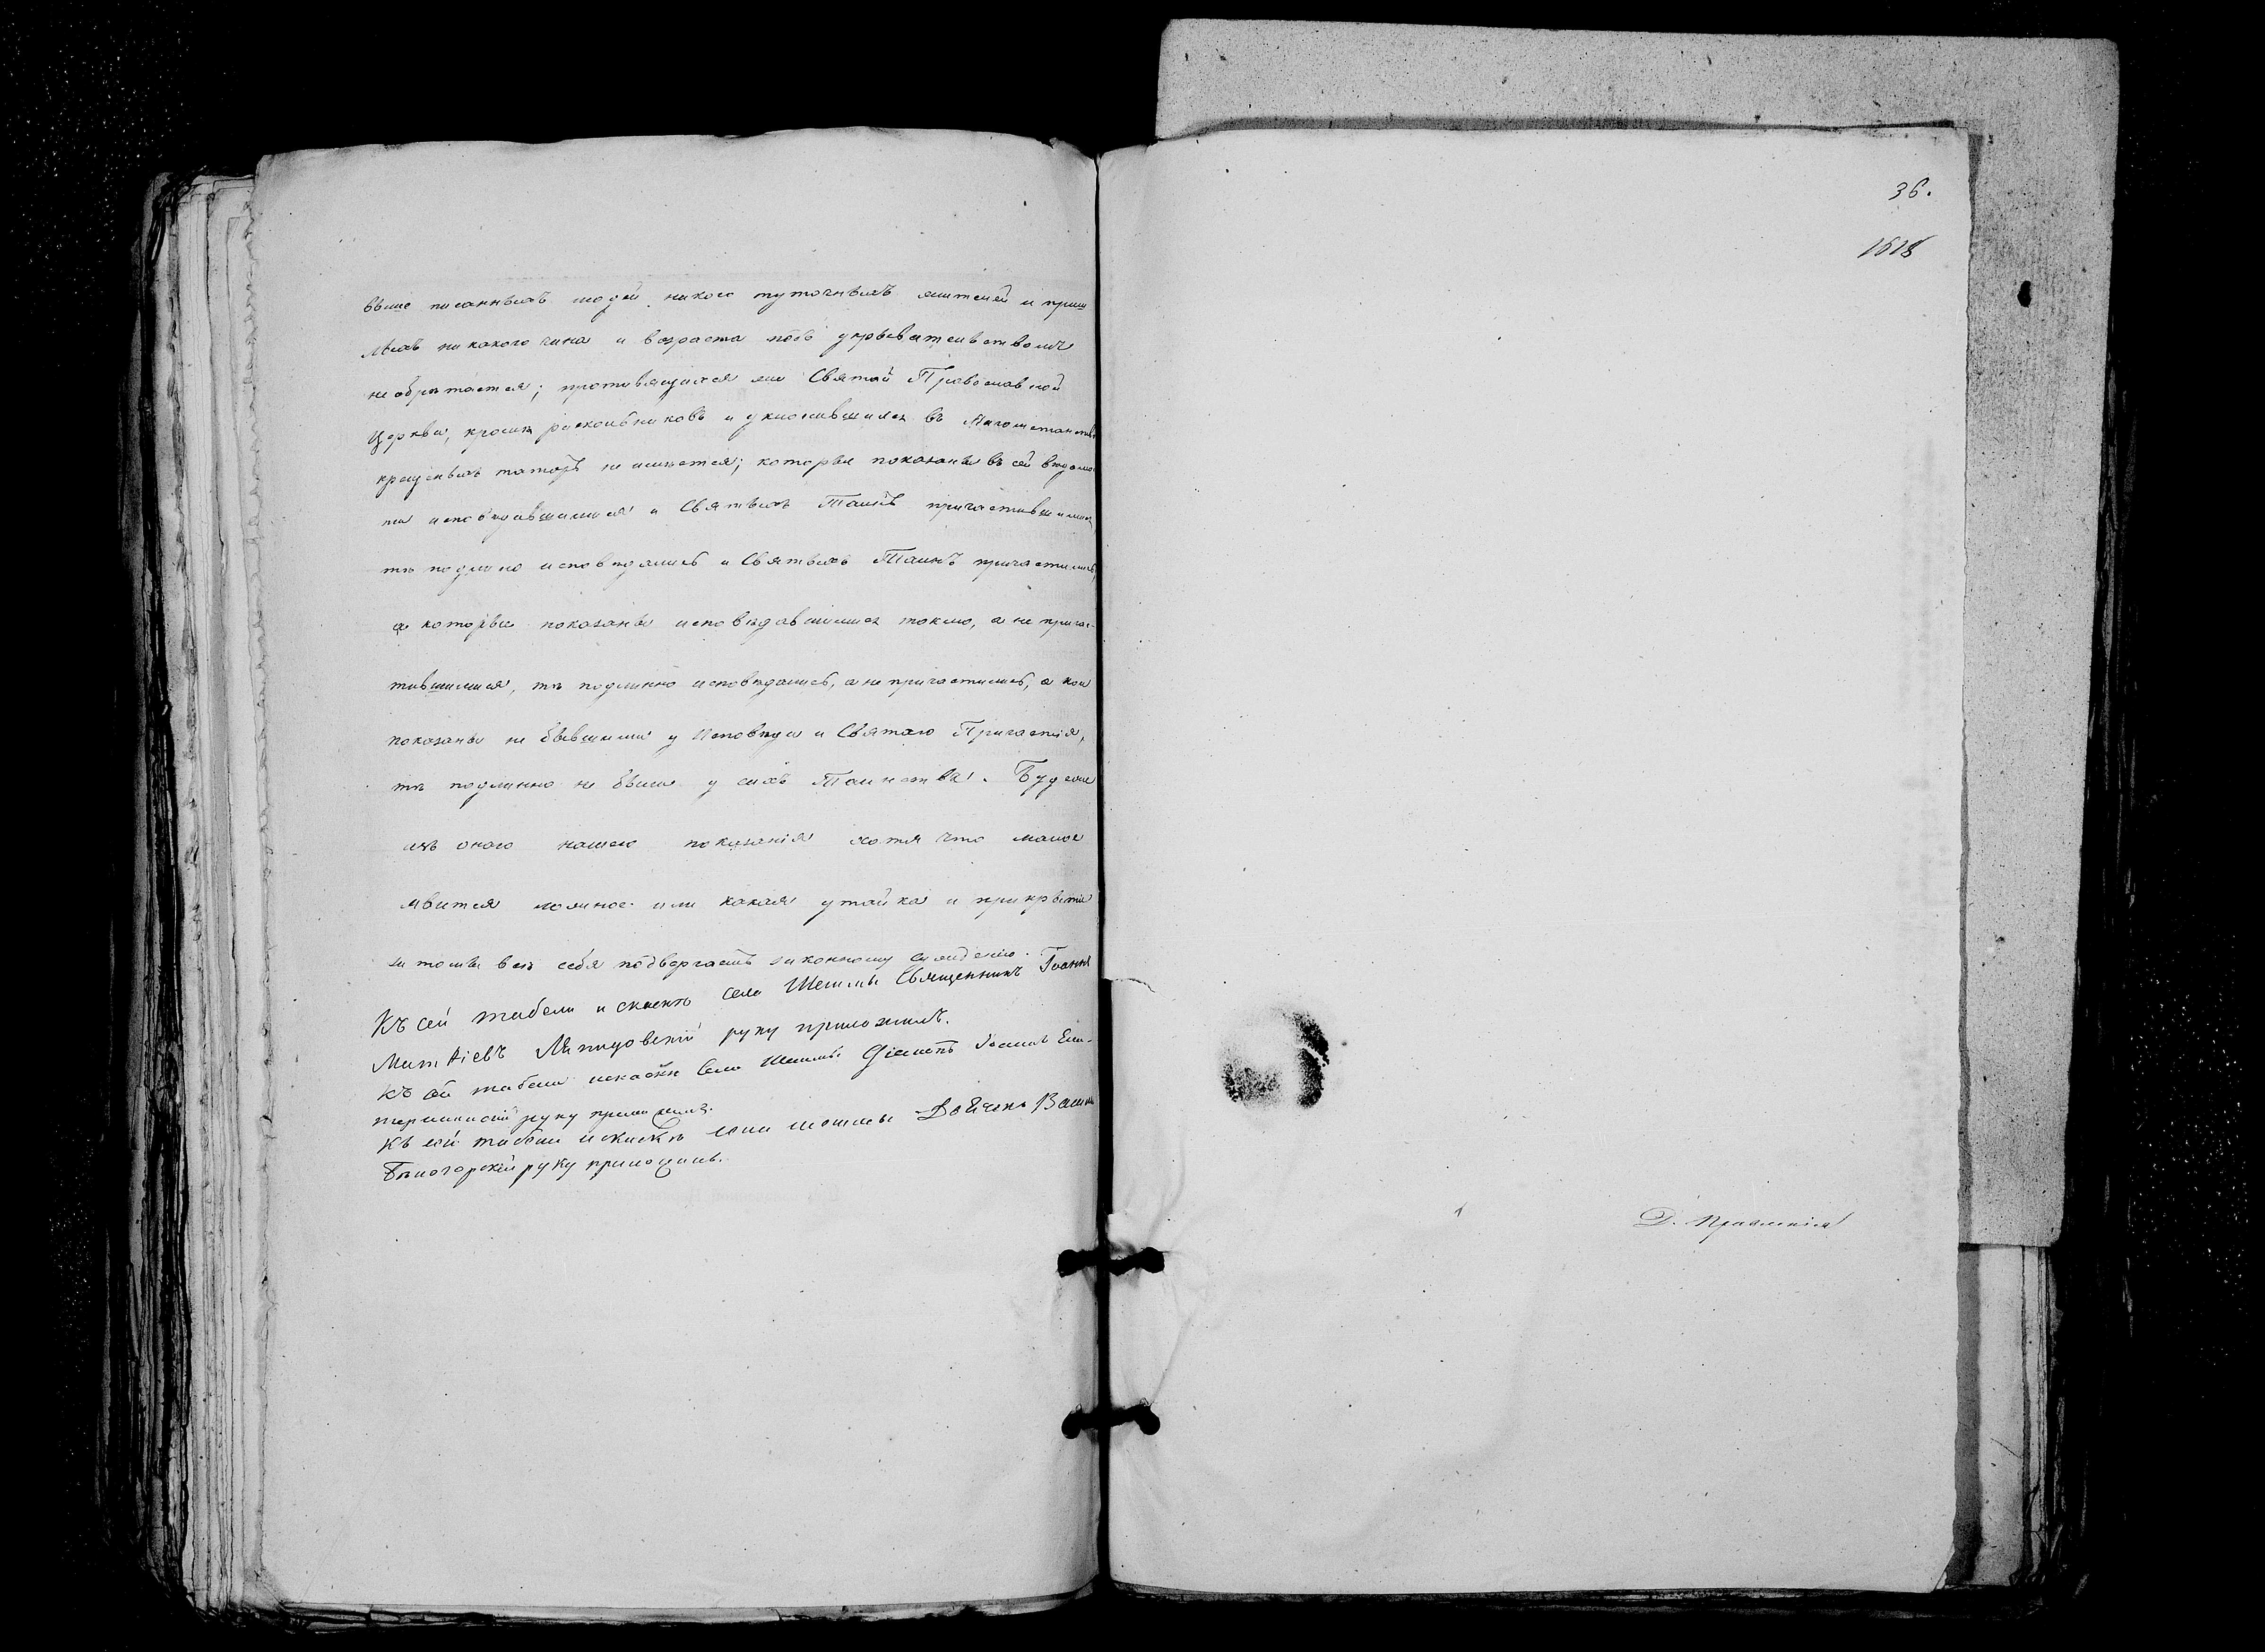 выше писанныхъ людей никого туточныхъ жителей и приш
лыхъ никакого чина и возраста подъ укрывательствомъ
не обрѣтается; противящихся же Святой Православной
Церкви, кромѣ раскольниковъ и уклонившихся въ Магометанство
крещеныхъ татаръ не имѣется; которые показаны въ сей вѣдомос
ти исповѣдавшимися и Святыхъ Таинъ причастившимися
тѣ подлинно исповѣдались и Святыхъ Таинъ причастились,
а которые показаны исповѣдавшимися токмо, а не причас-
тившимися, тѣ подлинно исповѣдались, а не причастились, а кои
показаны не бывшими у Исповѣди и Святаго Причастія,
тѣ подлинно не были у сихъ Таинства. Буде же
изъ онаго нашего показанія хотя что малое
явится ложное или какая утайка и прикрытіе
за то мы всѣ себя подвергаемъ законному сужденію.
Къ сей табели и сказкѣ села Шешмы Священникъ Іоаннъ
Матѳіевъ Ляпидовскій руку приложилъ.
Къ сей табели и сказкѣ села Шешмы Діаконъ Іоаннъ
руку приложилъ.
Къ сей табели и сказкѣ села Шешмы Дьячекъ
Бѣлогорскій руку приложилъ.
36.
Д. Правленія